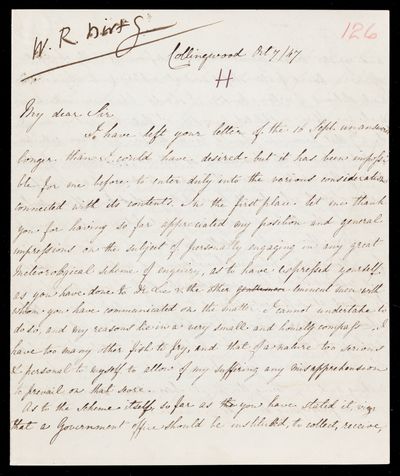 126
W. R. Birt
Collingwood Oct 7/47
H
My dear Sir
I have left your letter of the 16 Sept. unanswered
longer than I could have desired but it has been impossi-
ble for me before to enter duly into the various considerations
connected with its contents. In the first place let me thank
you for having so far appreciated my position and general
impressions on the subject of personally engaging in any great
Meteorological scheme of enquiry, as to have expressed yourself
as you have done to Dr Lee & the other gentlemen eminent men with
whom you have communicated on the matter. I cannot undertake to
do so, and my reasons lie in a very small and homely compass. I
have too many other fish to fry, and that of a nature too serious
& personal to myself to allow of my suffering any misapprehension
to prevail on that score.
As to the scheme itself, so far as you have stated it, viz:
that a Government office should be instituted, to collect, receive,